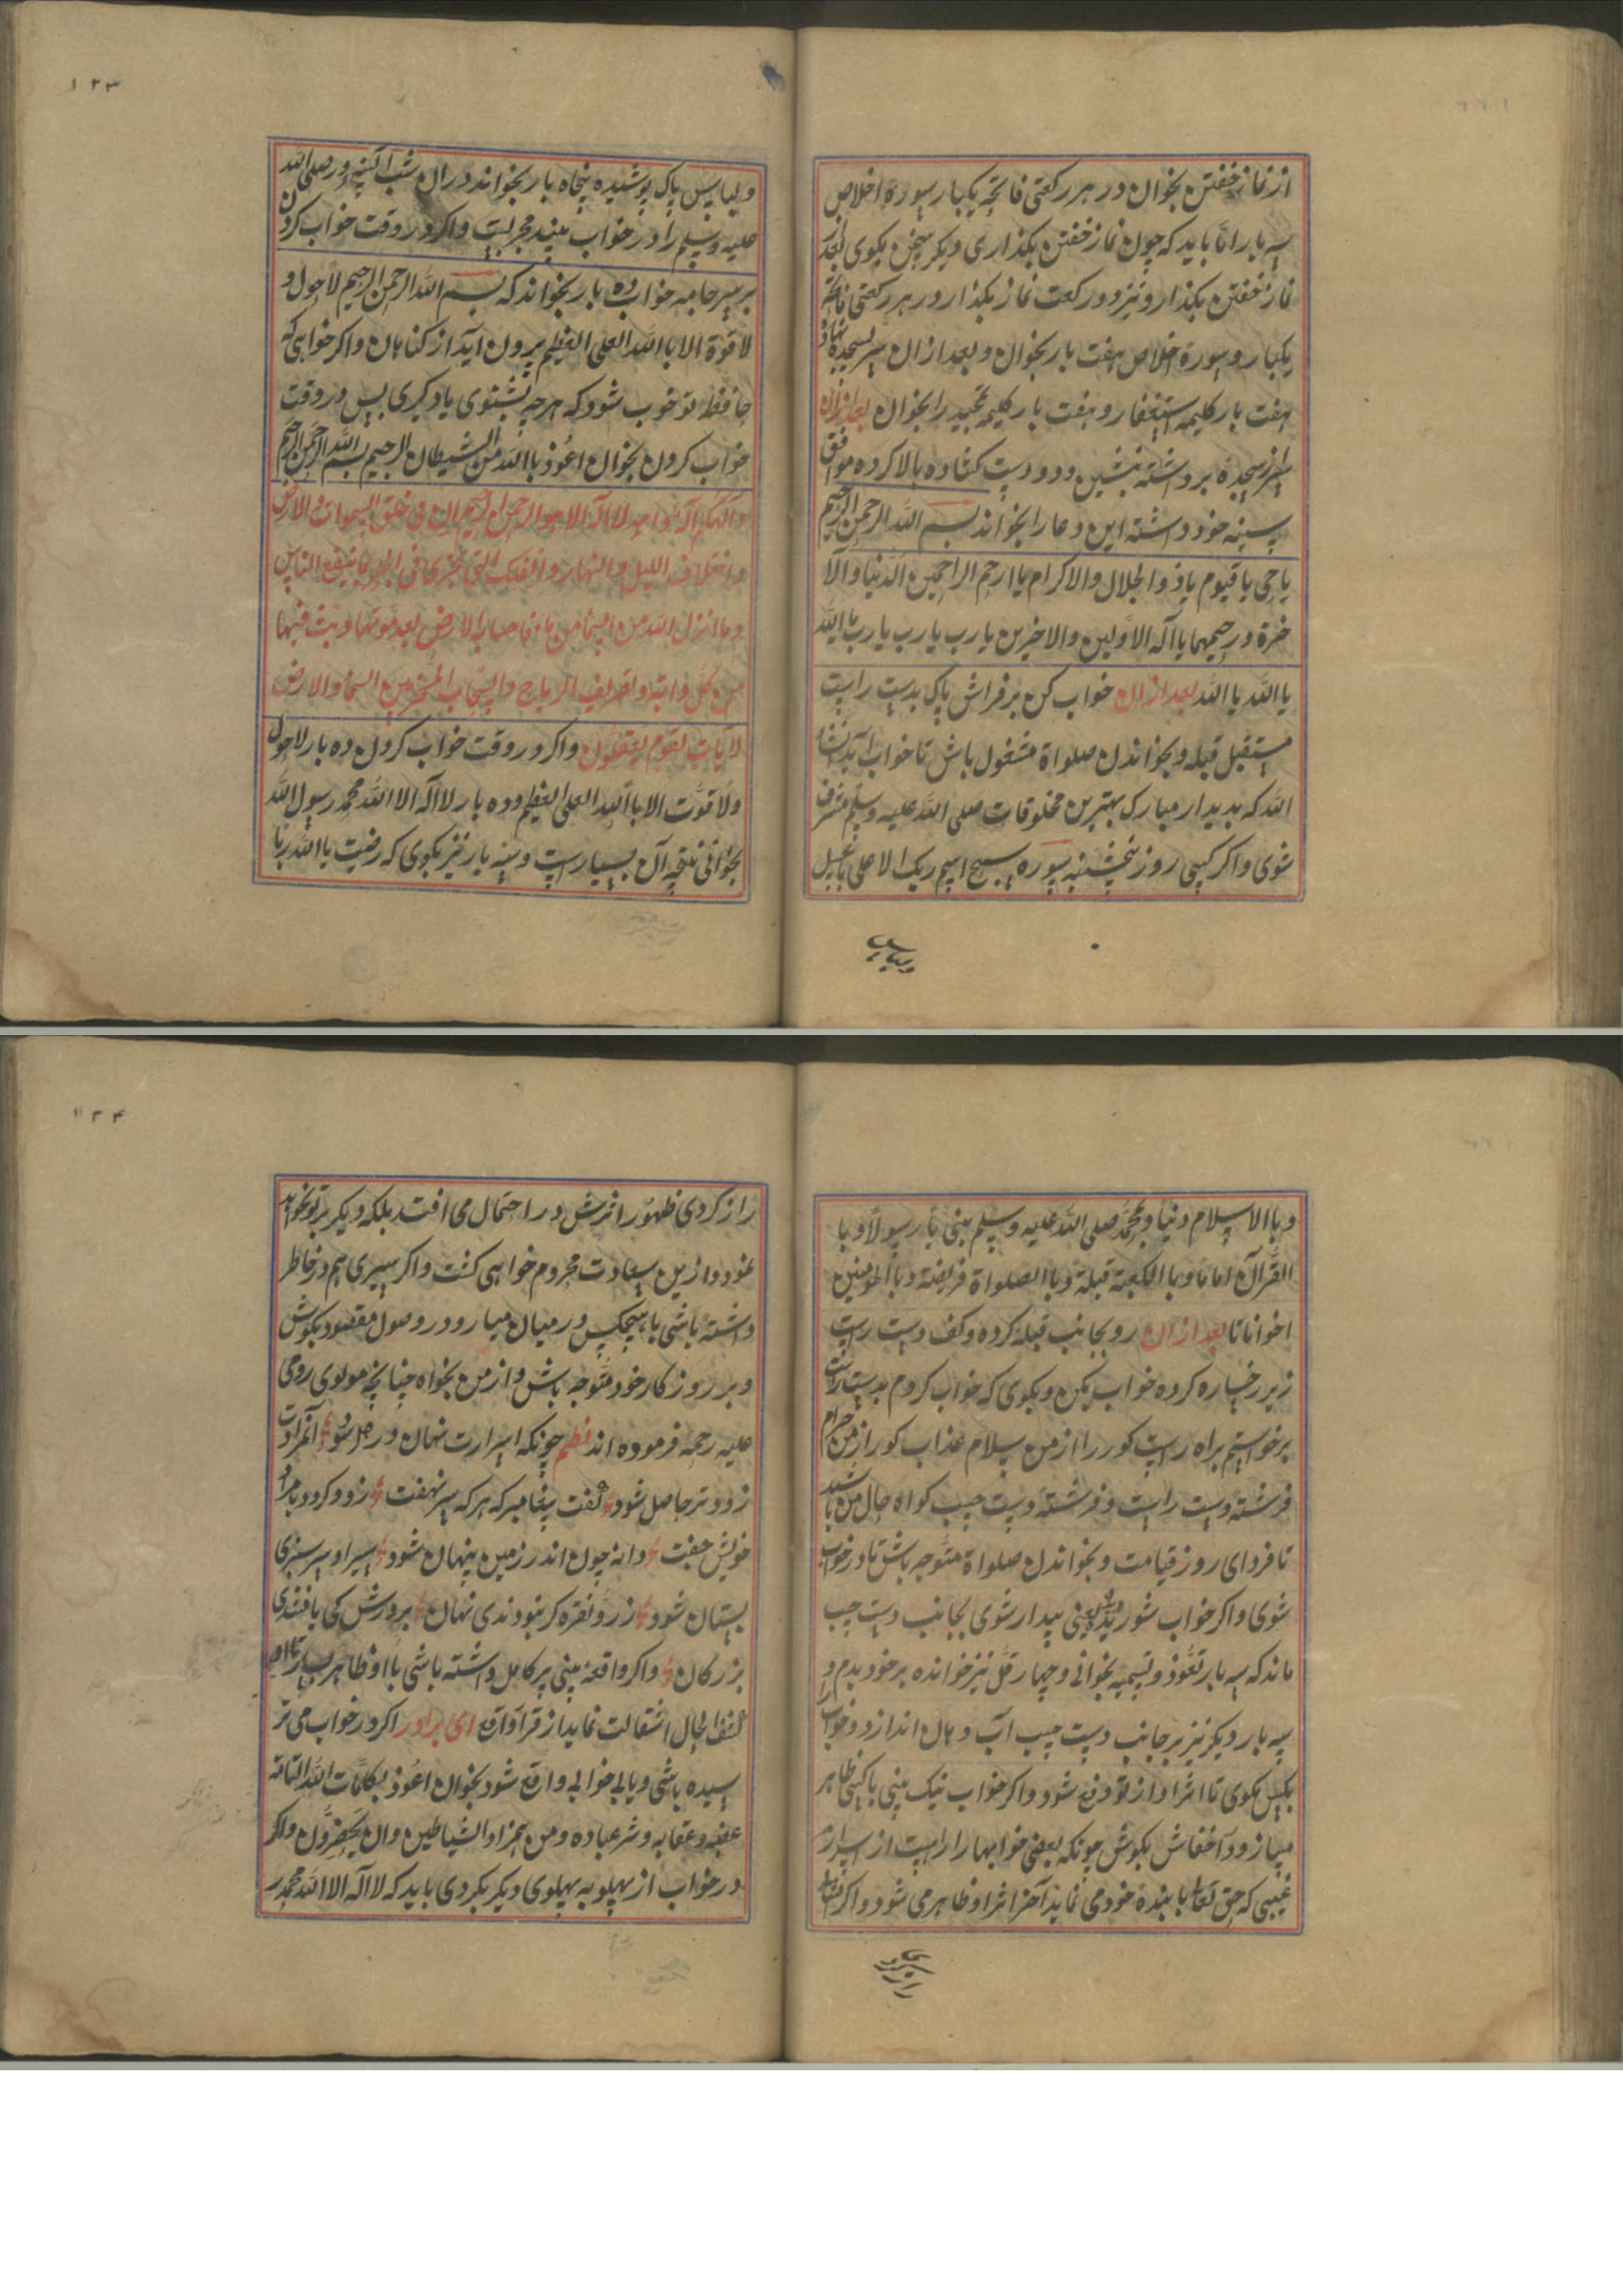 از نماز خفتن بخوان در هر رکعتی فاتحه یکبار سورة اخلاص
سه بار اما باید که چون نماز خفتن بکذاری دیکر سخن نکوی بعد
نماز خفتن بکذارد نیز دو رکعت نماز بکذار در هر رکعتی فاتحه
یکبار و سورة اخلاص هفت بار بخوان و بعد از ان سر بسجده نهاد
هفت بار کلیمه استغفار و هفت بار کلیمه تمجید را بخوان بعد از ان
سر از سجدة برداشته بنشین و دو دست کشاده بالا کرده موافق
سینه خود داشته این دعا را بخواند بسم الله الرحمن الرحیم
یا حی یا قیوم یا ذو الجلال والاکرام یا ارحم الراحمین الدنیا والآ
خرة و رحیمهما یا آله الاولین والاخرین یا رب یا رب یا رب یا الله
یا الله یا الله بعد از ان خواب کن بر فراش پاک بدست راست
مستقبل قبله و بخواندن صلواة مشغول باش تا خواب آید انشا
الله که بدیدار مبارک بهترین مخلوقات صلی الله علیه وسلم مشرف
شوی واکر کسی روز پنجشنبه سوره سبح اسم ربک الاعلی با غسل
ولباس
۱۲۳
ولباس پاک پوشیده پنجاه بار بخواند در ان شب صلی الله
علیه وسلم را در خواب بیند مجربست واکر در وقت خواب کردن
بر سر جامه خواب ده بار بخواند که بسم الله الرحمن الرحیم لا حول و
لا قوة الا باالله العلی العظیم برون آید از کناهان واکر خواهی که
حافظ تو خوب شود که هر چه بشنوی یاد کیری پس در وقت
خواب کردن بخوان اعوذ باالله من الشیطان الرجیم بسم الله الرحمن الرحیم
والهکم آله واحد لا اله الا هو الرحمن الرحیم ان فی خلق السموات والارض
واختلاف اللیل والنهار والفلک التی تجری فی البحر بما ینفع الناس
وما انزل الله من السماء من ماء فاحیا به الارض بعد موتها وبث فیها
من کل دابة وتصریف الریاح والسحاب المسخر بین السماء والارض
لآیات لقوم یعقلون واکر در وقت خواب کردن ده بار لا حول
ولا قوت الا باالله العلی العظیم وده بار لا اله الا الله محمد رسول الله
بخوانی نتیجه آن بسیار است وسه بار نیز بکوی که رضیت باالله ربا
وبا الاسلام دنیا وبمحمد صلی الله علیه وسلم نبی یا رسولا وبا
القرآن اماما وبا الکعبة قبلة وبا الصلواة فریضة وبا المومنین
اخوانا بعد از ان رو بجانب قبله کرده وکف دست راست
زیر رخساره کرده خواب بکن و بکوی که خواب کردم بدست راست
برخواستم براه راست کور را از من سلام عذاب کور از من حرام
فرشتهٔ دست راست و فرشتهٔ دست چپ کواه حال من باشید
تا فردای روز قیامت و بخواندن صلواة متوجه باش تا در خواب
شوی واکر خواب شوریده بینی بیدار شوی بجانب دست چپ
ماند که سه بار تعوذ و تسمیه بخوانی و چهار قل نیز خوانده بر خود بدم و
سه بار دیکر نیز بر جانب دست چپ آب دهان انداز و خواب
بکس نکوی تا اثر او از تو دفع شود واکر خواب نیک بینی با کسی ظاهر
مساز و در اخفاش بکوش چونکه بعضی خوابها را رازیست از اسرار
غیبی که حق تعالی با بندهٔ خود می نماید آخر اثر او ظاهر می شود واکر
۱۲۴
راز کردی ظهور اثرش در احتمال می افتد بلکه دیکر بتو نخواهد
نمود و ازین سعادت محروم خواهی کشت واکر سری هم در خاطر
داشته باشی با هیچکس در میان میار و در وصول مقصود بکوش
وبر روز کار خود متوجه باش و از من بخواه چنانچه مولوی رومی
علیه رحمه فرموده اند نظم چونکه اسرارت نهان در دل شود آن مرادت
زودتر حاصل شود کفت پیغامبر که هر که سر نهفت زود کردد با مراد
خویش جفت دانه چون اندر زمین پنهان شود سر او سر سبزی
بستان شود زر و نقره کر نبودندی نهان پرورش کی یافتندی
زیر کان واکر واقعهٔ بینی پر کامل داشته باشی با او ظاهر بساز تا او
کشف الحال انتقالت نماید از قرآوآة ای برادر اکر در خواب می تر
سیده باشی ویا بی خوابی واقع شود بخوان اعوذ بکلمات الله التامه
غضبه وعقابه وشر عباده ومن همزاوالشیاطین وان یحضرون واکر
در خواب از پهلو به پهلوی دیکر بکردی باید که لا اله الا الله محمد ر